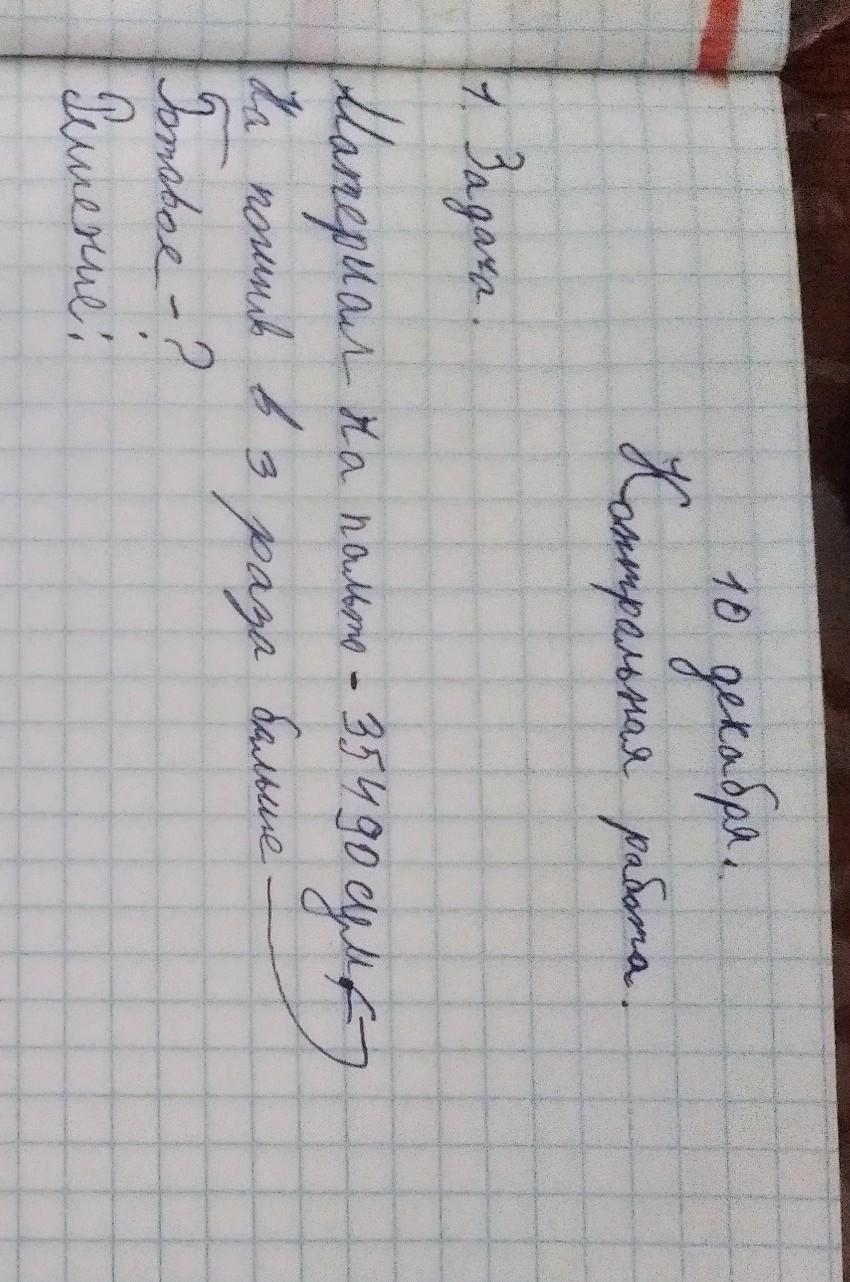 10 декабря.
Контральная работа.
1. Задача.
Материал на пальто - 35490 сум
На пошив в 3 раза больше
Готовое - ?
Решение: